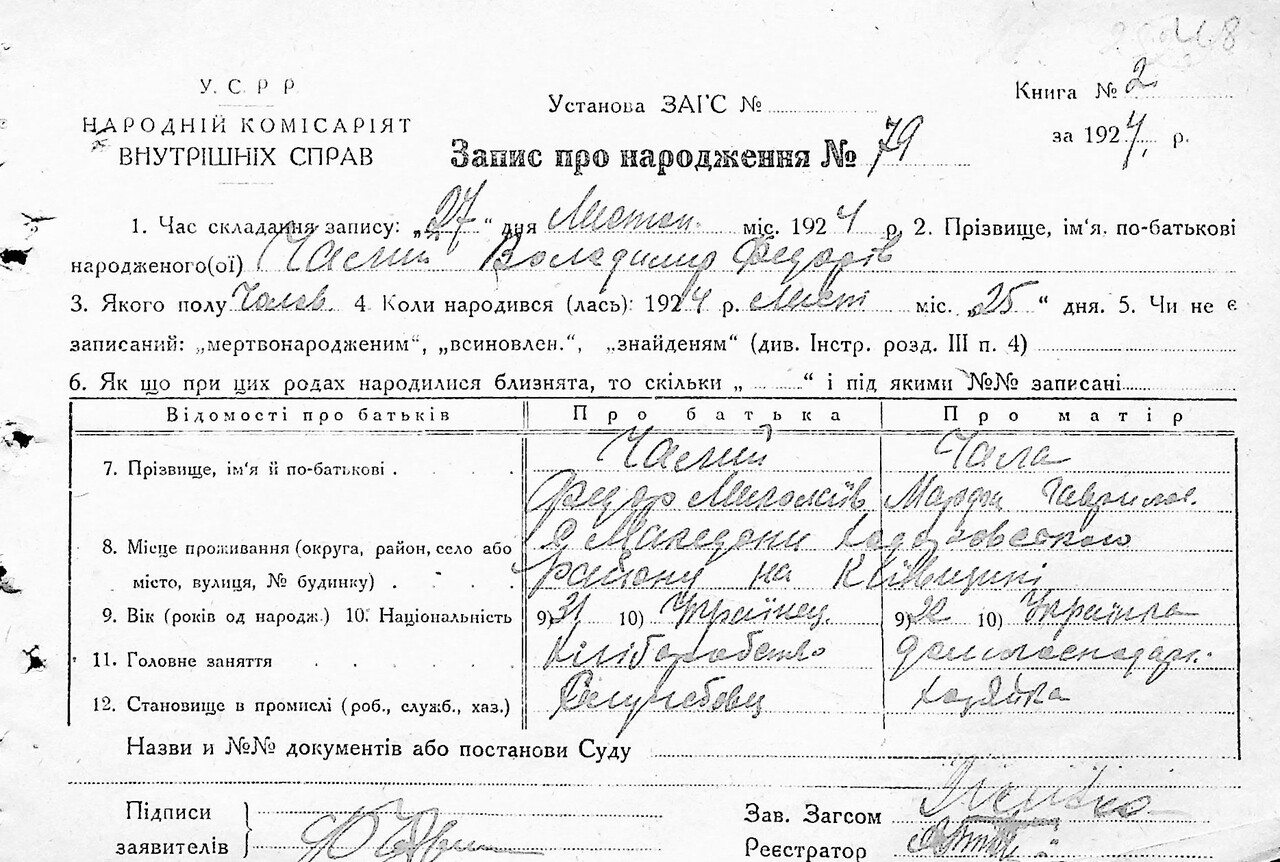 У. С. Р. Р.
НАРОДНІЙ КОМІСАРІЯТ
ВНУТРІШНІХ СПРАВ
Установа ЗАГС №
Книга № 2
за 1924, р.
Запис про народження № 79
1. Час складання запису: „27“ дня Листоп. міс. 1924 р. 2. Прізвище, ім'я, по-батькові
народженого(ої) Чалий Володимир Федорів
3. Якого полу Чолов. 4. Коли народився (лась): 1924 р. Лист міс. „25“ дня. 5. Чи не є
записаний: „мертвонародженим“, „всиновлен.“, „знайденям“ (див. Інстр. розд. III п. 4)
6. Як що при цих родах народилися близнята, то скільки „ “ і під якими №№ записані
Відомості про батьків Про батька Про матір
7. Прізвище, ім'я й по-батькові Чалий Чала
Федор Миколаїв Марфа Гаврилов.
8. Місце проживання (округа, район, село або С Македони
місто, вулиця, № будинку) району на Київщині
9. Вік (років од народж.) 10. Національність 9) 31 10) Українец 9) 22 10) Українка
11. Головне заняття Хліборобство домогосподарк.
12. Становище в промислі (роб., служб., хаз.) хазяйка
Назви и №№ документів або постанови Суду
Підписи
заявителів
Зав. Загсом
Реєстратор